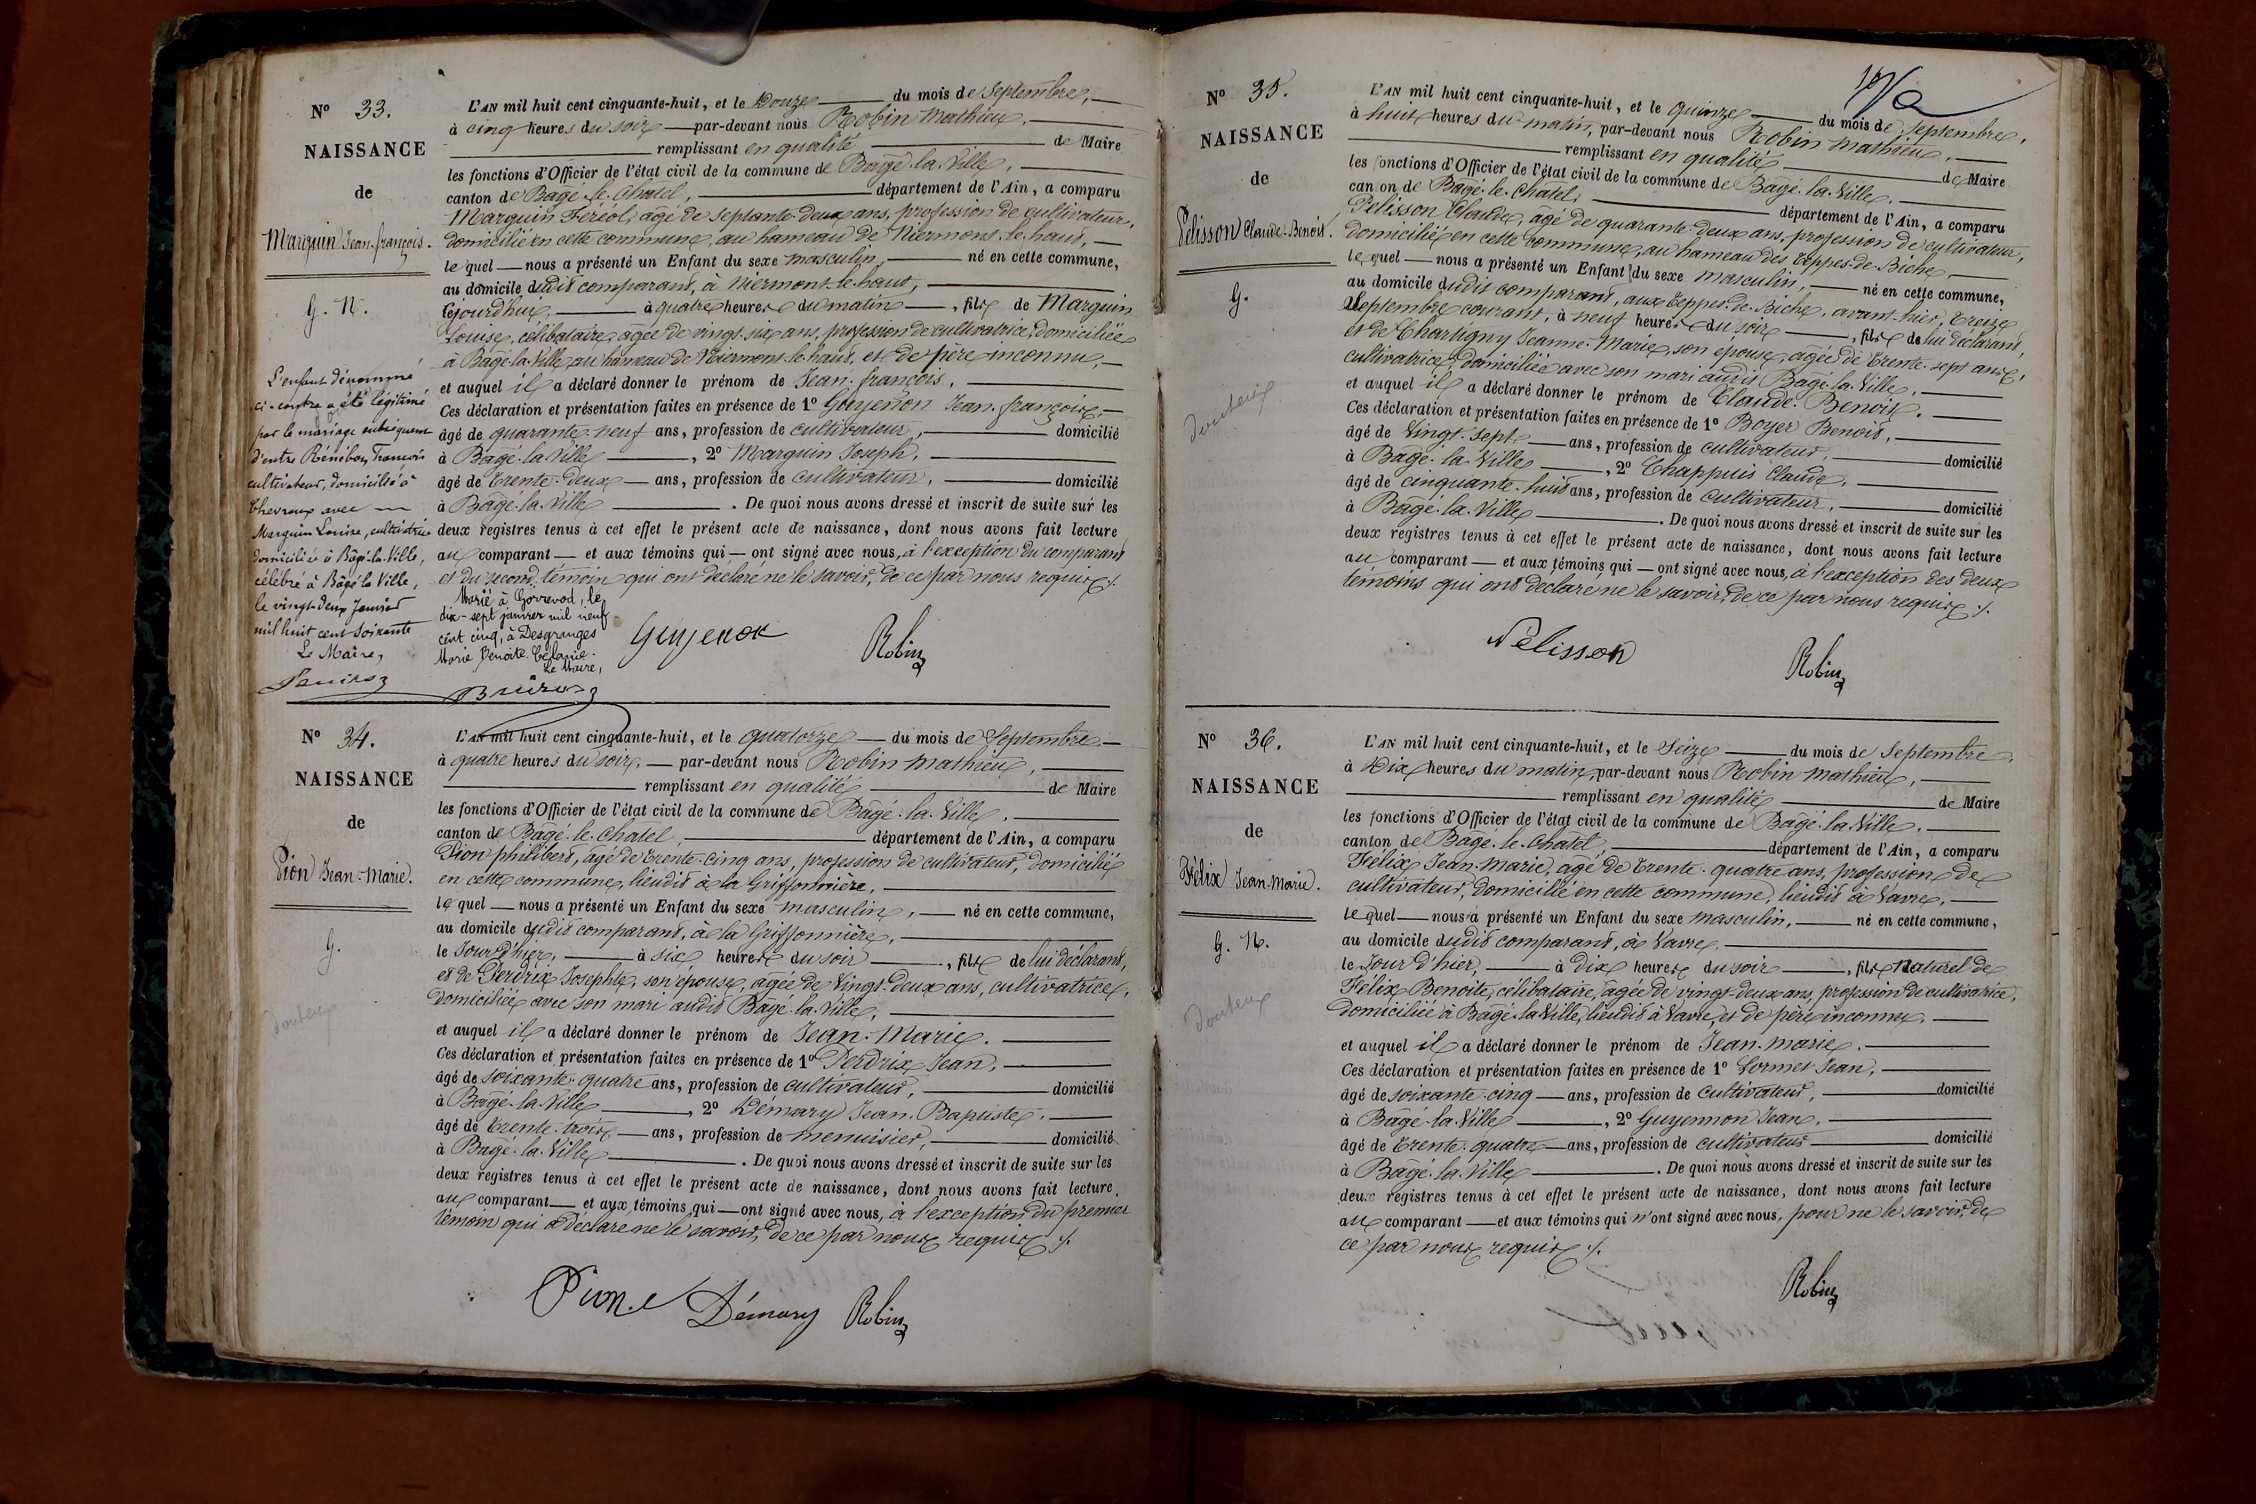 N° 33.
NAISSANCE
de
Marguin Jean-françois.
G. N.
L'enfant dénommé
ci-contre a été légitimé
par le mariage subséquent
d'entre Rénibon, François
cultivateur, domicilié à
Chevroux avec
Marguin Louise, cultivatrice
domiciliée à Bâgé-la-Ville,
célébré à Bâgé la Ville,
le vingt-deux Janvier
mil huit cent soixante
Le Maire,
L'AN mil huit cent cinquante-huit, et le Douze du mois de Septembre,
à cinq heures du soir, par-devant nous Robin Mathieu,
remplissant en qualité de Maire
les fonctions d'Officier de l'état civil de la commune de Bâgé-la-Ville,
canton de Bâgé-le-Chatel, département de l'Ain, a comparu
Marguin Féréol, âgé de septante-deux ans, profession de cultivateur,
domicilié en cette commune, au hameau de Niermont-le-haut,
le quel nous a présenté un Enfant du sexe masculin, né en cette commune,
au domicile dudit comparant, à Niermont-le-haut,
cejourd'hui, à quatre heures du matin, fils de Marguin
Louise, célibataire, âgée de vingt-six ans, profession de cultivatrice, domiciliée
à Bâgé-la-Ville au hameau de Niermont-le-haut, et de père inconnu,
et auquel il a déclaré donner le prénom de Jean-françois.
Ces déclaration et présentation faites en présence de 1° Guyenon Jean-françois,
âgé de quarante-neuf ans, profession de cultivateur, domicilié
à Bâgé-la-Ville, 2° Marguin Joseph,
âgé de trente-deux ans, profession de cultivateur, domicilié
à Bâgé-la-Ville. De quoi nous avons dressé et inscrit de suite sur les
deux registres tenus à cet effet le présent acte de naissance, dont nous avons fait lecture
au comparant et aux témoins qui ont signé avec nous, à l'exception du comparant
et du second témoin qui ont déclaré ne le savoir, de ce par nous requis ./.
Marié à Gorrevod, le
dix-sept janvier mil neuf
cent cinq, à Desgranges
Marie Benoite Célanie.
Le Maire,
Guyenon
Robin
N° 34.
NAISSANCE
de
Pion Jean-Marie.
G.
douteux
L'AN mil huit cent cinquante-huit, et le quatorze du mois de Septembre
à quatre heures du soir, par-devant nous Robin Mathieu,
remplissant en qualité de Maire
les fonctions d'Officier de l'état civil de la commune de Bâgé-la-Ville,
canton de Bâgé-le-Chatel, département de l'Ain, a comparu
Pion philibert, âgé de trente-cinq ans, profession de cultivateur, domicilié
en cette commune, lieudit à la Griffonnière,
le quel nous a présenté un Enfant du sexe masculin, né en cette commune,
au domicile dudit comparant, à la Griffonnière,
le Jour d'hier, à six heures du soir, fils de lui déclarant,
et de Perdrix Josephte, son épouse, âgée de vingt-deux ans, cultivatrice,
domiciliée avec son mari audit Bâgé-la-Ville,
et auquel il a déclaré donner le prénom de Jean-Marie.
Ces déclaration et présentation faites en présence de 1° Perdrix Jean,
âgé de soixante-quatre ans, profession de cultivateur, domicilié
à Bâgé-la-Ville, 2° Démary Jean-Baptiste,
âgé de trente-trois ans, profession de menuisier, domicilié
à Bâgé-la-Ville. De quoi nous avons dressé et inscrit de suite sur les
deux registres tenus à cet effet le présent acte de naissance, dont nous avons fait lecture,
au comparant et aux témoins qui ont signé avec nous, à l'exception du premier
témoin qui a déclaré ne le savoir, de ce par nous requis ./.
Pion
Démary
Robin
N° 35.
NAISSANCE
de
Pelisson Claude-Benoit.
G.
douteux
L'AN mil huit cent cinquante-huit, et le Quinze du mois de Septembre,
à huit heures du matin, par-devant nous Robin Mathieu,
remplissant en qualité de Maire
les fonctions d'Officier de l'état civil de la commune de Bâgé-la-Ville,
canton de Bâgé-le-Chatel, département de l'Ain, a comparu
Pelisson Claude, âgé de quarante-deux ans, profession de cultivateur,
domicilié en cette commune, au hameau des Teppes-de-Biche,
le quel nous a présenté un Enfant du sexe masculin, né en cette commune,
au domicile dudit comparant, aux Teppes-de-Biche, avant-hier, treize
Septembre courant, à neuf heures du soir, fils de lui déclarant,
et de Chartigny Jeanne-Marie, son épouse, âgée de trente-sept ans,
cultivatrice, domiciliée avec son mari audit Bâgé-la-Ville,
et auquel il a déclaré donner le prénom de Claude-Benoit.
Ces déclaration et présentation faites en présence de 1° Boyer Benoit,
âgé de vingt-sept ans, profession de cultivateur, domicilié
à Bâgé-la-Ville, 2° Chappuis Claude,
âgé de cinquante-huit ans, profession de cultivateur, domicilié
à Bâgé-la-Ville. De quoi nous avons dressé et inscrit de suite sur les
deux registres tenus à cet effet le présent acte de naissance, dont nous avons fait lecture
au comparant et aux témoins qui ont signé avec nous, à l'exception des deux
témoins qui ont déclaré ne le savoir, de ce par nous requis ./.
Pelisson
Robin
N° 36.
NAISSANCE
de
Félix Jean-Marie.
G. N.
douteux
L'AN mil huit cent cinquante-huit, et le Seize du mois de Septembre,
à Dix heures du matin, par-devant nous Robin Mathieu,
remplissant en qualité de Maire
les fonctions d'Officier de l'état civil de la commune de Bâgé-la-Ville,
canton de Bâgé-le-Chatel, département de l'Ain, a comparu
Félix Jean-Marie, âgé de trente-quatre ans, profession de
cultivateur, domicilié en cette commune, lieudit à Vavre,
le quel nous a présenté un Enfant du sexe masculin, né en cette commune,
au domicile dudit comparant, à Vavre,
le Jour d'hier, à dix heures du soir, fils Naturel de
Félix Benoite, célibataire, âgée de vingt-deux ans, profession de cultivatrice,
domiciliée à Bâgé-la-Ville, lieudit à Vavre, et de père inconnu,
et auquel il a déclaré donner le prénom de Jean-Marie.
Ces déclaration et présentation faites en présence de 1° Cormet Jean,
âgé de soixante-cinq ans, profession de cultivateur, domicilié
à Bâgé-la-Ville, 2° Guyennon Jean,
âgé de trente-quatre ans, profession de cultivateur domicilié
à Bâgé-la-Ville. De quoi nous avons dressé et inscrit de suite sur les
deux registres tenus à cet effet le présent acte de naissance, dont nous avons fait lecture
au comparant et aux témoins qui n'ont signé avec nous, pour ne le savoir, de
ce par nous requis ./.
Robin